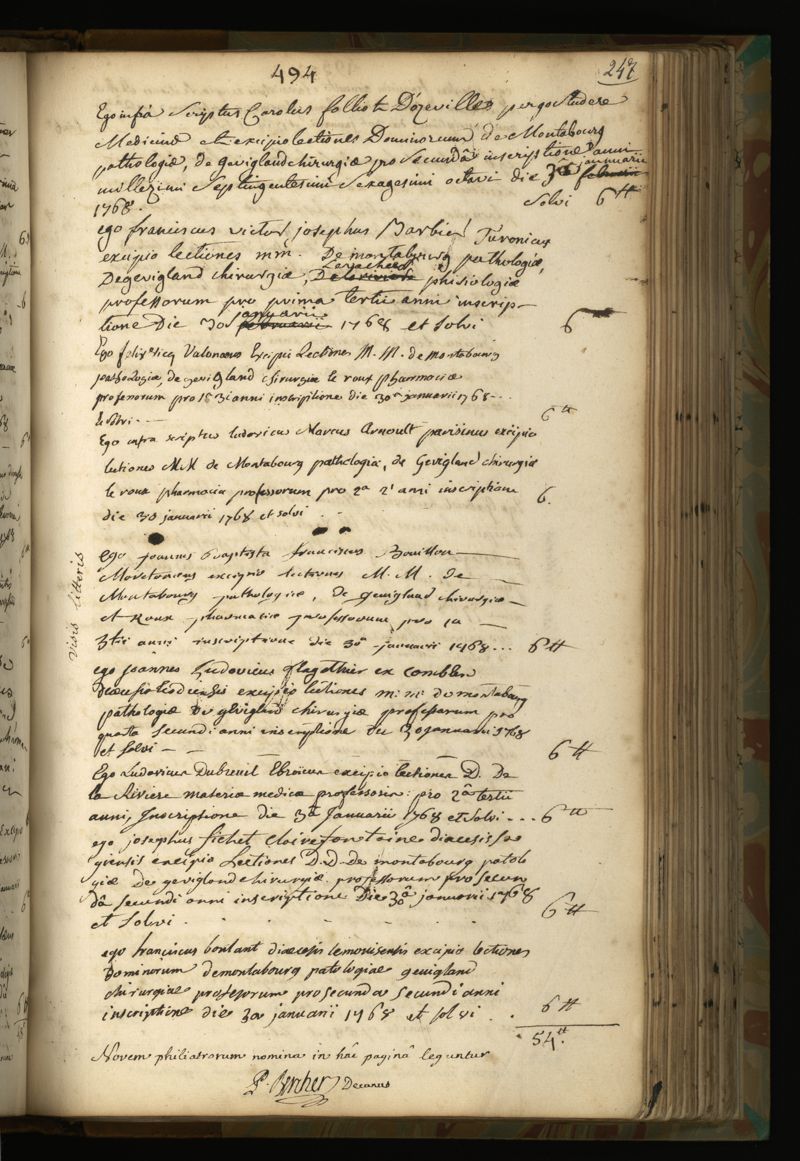 494
247
Ego infra Scriptus Carolus folliot D'Ozeville pergo studere
Medicinæ et excipio lectiones Dominorum de Montabourg
pathologiæ, de gevigland chirurgiæ pro secundâ inscriptione anni
millezimi Septingentesimi Sexagesimi octavi die 30 januarii
1768. Solvi 6tt
ego franciscus victor josephus Barbier Turonicus
excipio lectiones mm. De montabourg pathologiæ,
De gevigland chirurgiæ, phisiologiæ
professorum pro prima tertii anni inscrip-
tione die 30 januarii 1768 et solvi 6
Ego Valonaeus Excipio Lectiones M. M. de montabourg
pathologiæ, de gevigland chirurgiæ le roux pharmaciæ
professorum pro 1â 3i anni inscriptione die 30â januarii 1768 - - .
et solvi - - - 6tt
Ego infra scriptus ludovicus Marcus Arnoult parisinus excipio
lectiones M.M de Montabourg pathologia, de Gevigland chirurgiæ
le roux pharmacia professorum pro 2â 2i anni inscriptione
die 30 januarii 1768 et solvi . . 6.
visis litteris
Ego joannes baptista franciscus Bouillon
excipio lectiones M. M. de
Montabourg pathologiæ, de gevigland chirurgiæ
et Roux pharmaciæ professorum pro 1a
3tii anni inscriptione die 30â januarii 1768 . . . 6tt
ego joannes Ludovicus flagothier ex comblen
Diœcesis leodiensis excipio lectiones m: m: de montabourg
pathologiæ De gevigland chirurgiæ professorum pro
quarta secundi anni inscriptione die 30 januarii 1768
et solvi - - - 6tt
Ego Ludovicus Dubreuil Ebroicus excipio lectiones D. De
la Riviere materiæ medicæ professoris: pro 2â tertii
anni, Inscriptione die 30â Januarii 1768 et Solvi . . . 6tt
ego josephus fichet Clairefontaine diœcesis sa
giensis excipio Lectiones D.D. De montabourg patolo
giæ De gevigland chirurgiæ professorum pro secun
dâ secundi anni inscriptione Die 30â januarii 1768
et solvi . . . . . . 6tt
ego franciscus bontant diœcesis lemovisensis excipio lectiones
Dominorum demontabourg patologiæ gevigland
chirurgiæ professorum pro secunda secundi anni
inscriptione die 30 januarii 1768 et solvi . . 6tt
54tt.
Novem philiatrorum nomina in hâc paginâ leguntur
Decanus